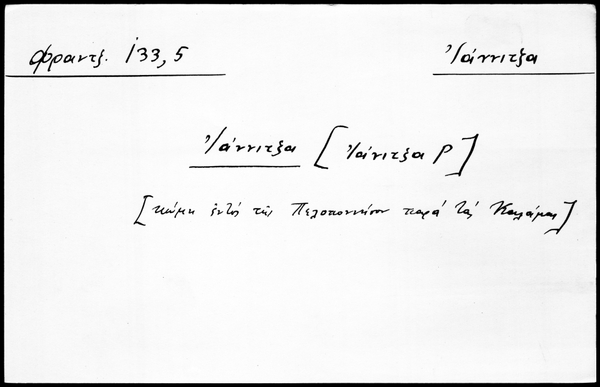 Φραντζ. 133,5 Ἰάννιτζα
Ἰάννιτζα [Ἰάνιτζα P]
[κώμη ἐντός τῆς Πελοποννήσου παρά τάς Καλάμας]